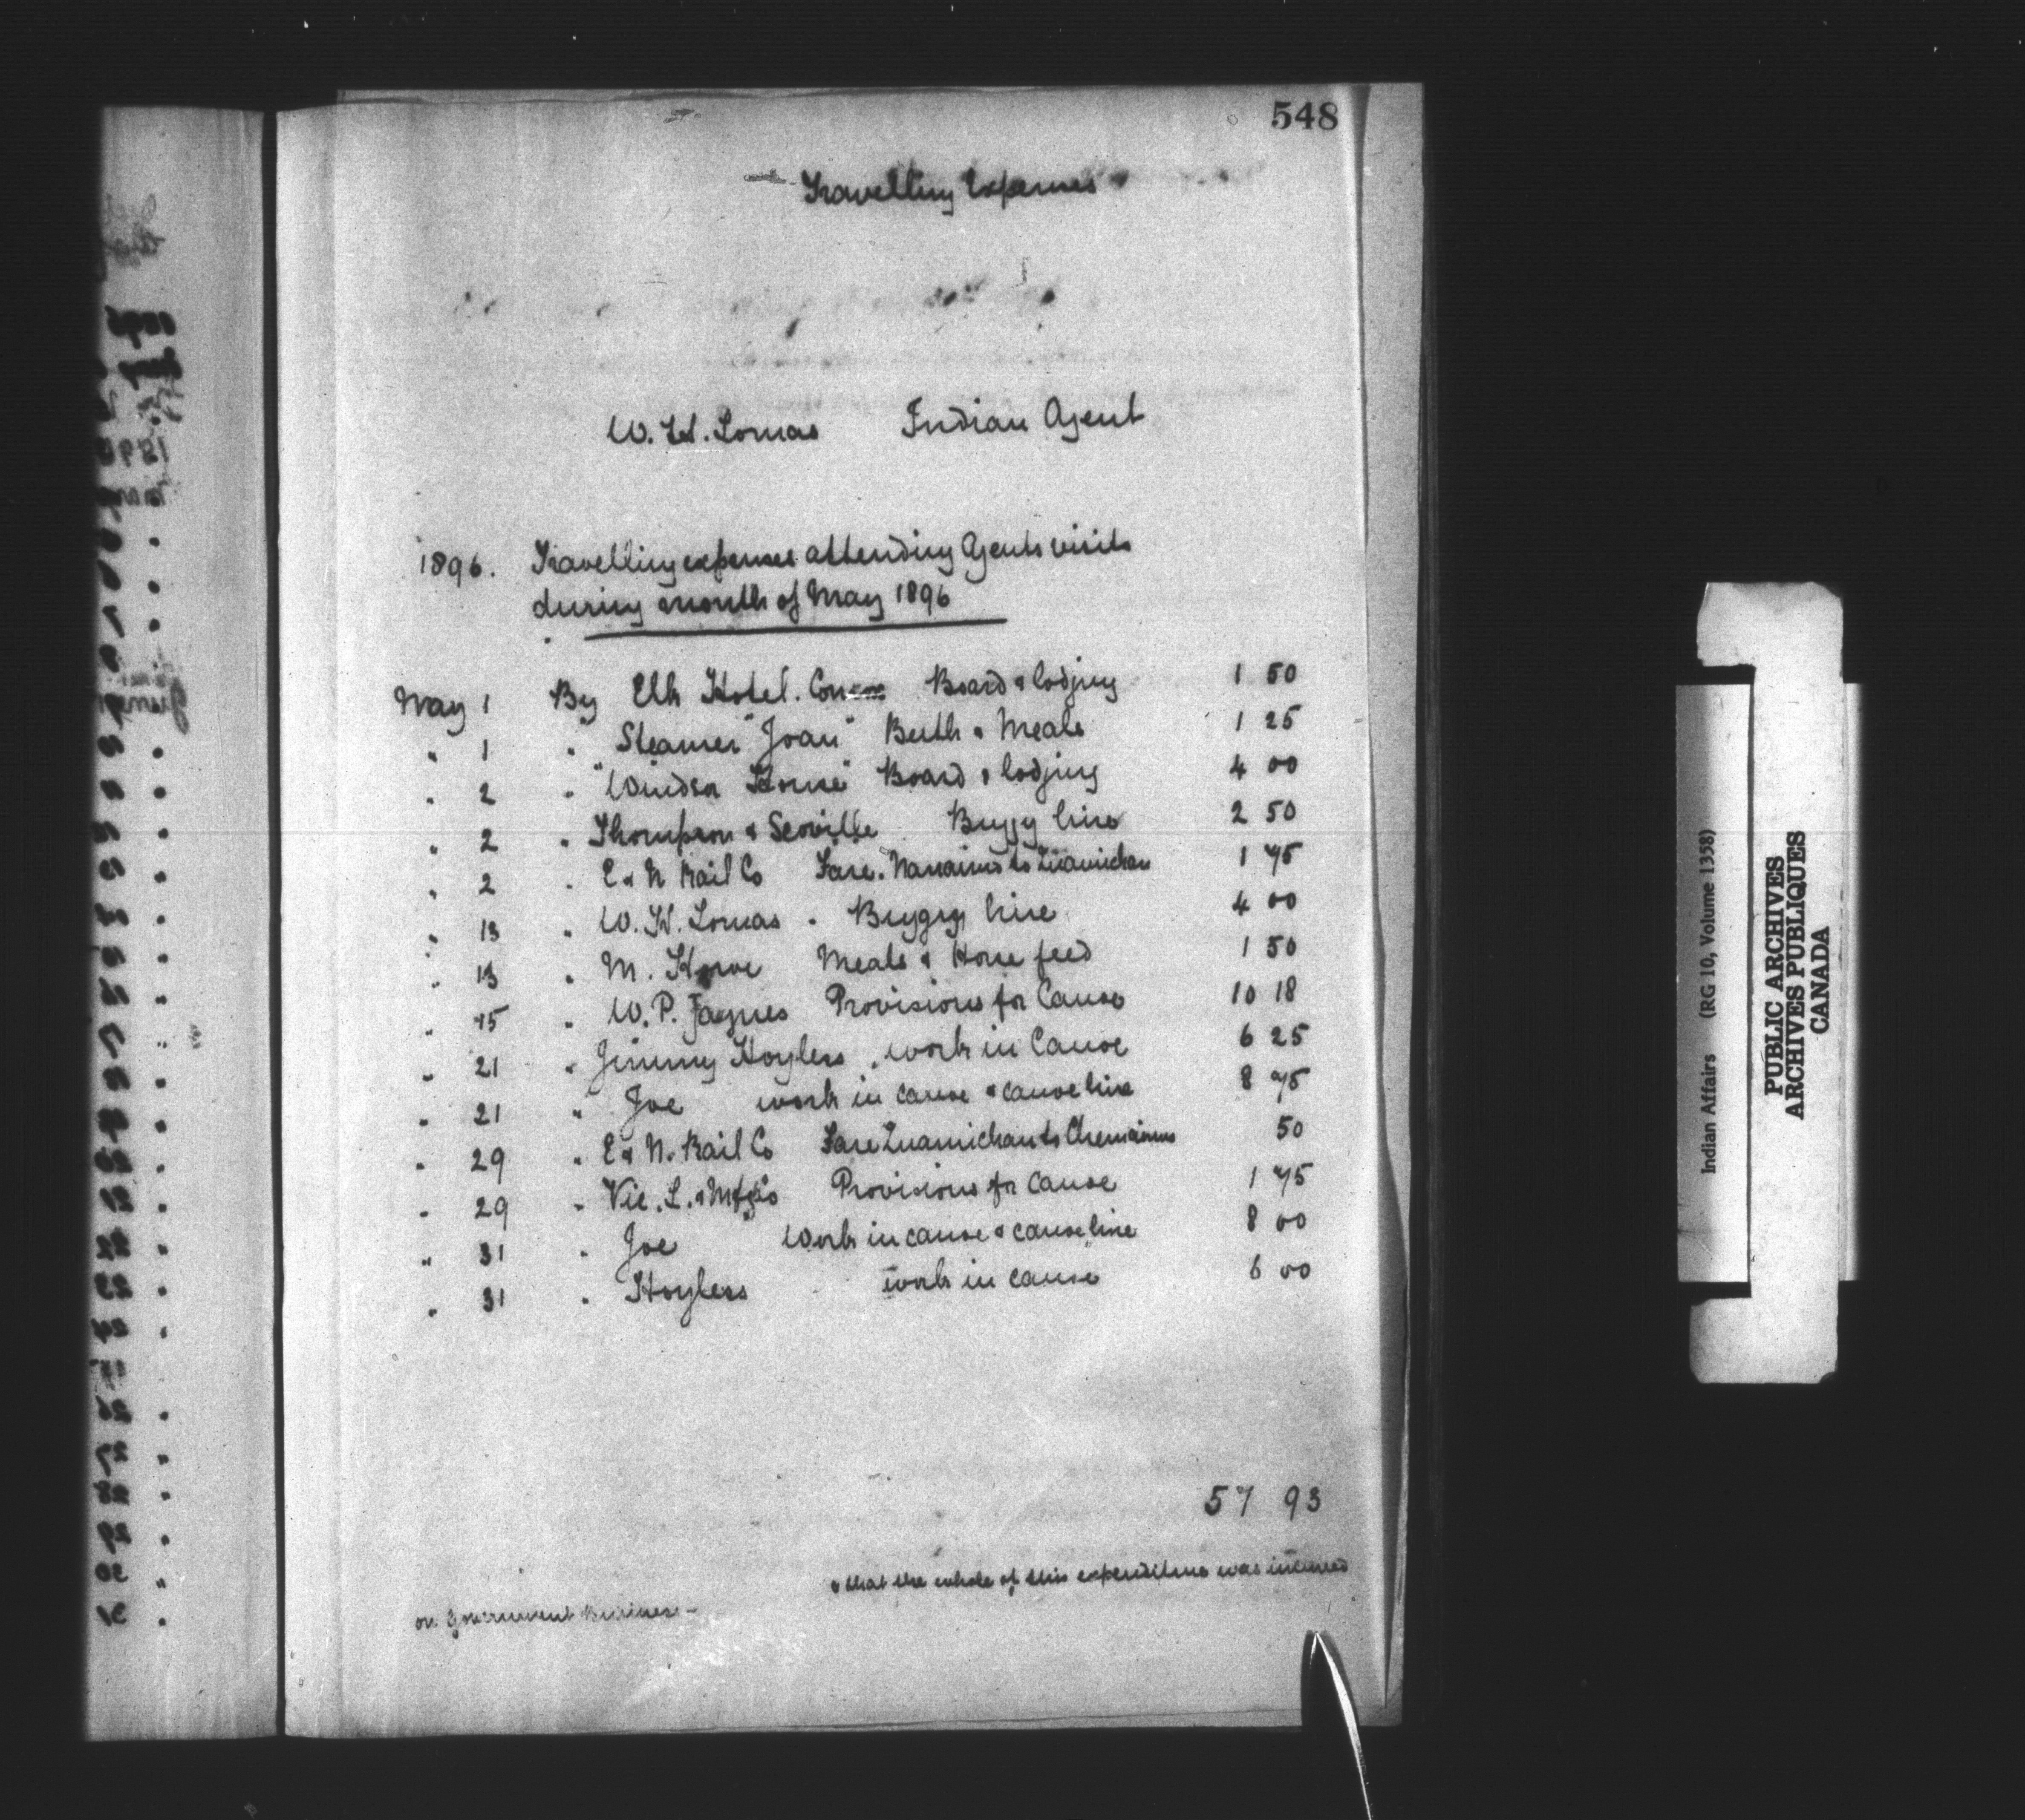 548
Travelling Expenses
W. H. Lomas Indian Agent
1896. Travelling expenses attending Agents visits
during month of May 1896
May 1 By Elk Hotel. Comox Board & lodging 1 50
" 1 " Steamer "Joan" Berth & Meals 1 25
" 2 " "Windsor House" Board & lodging 4 00
" 2 " Thompson & Scoville Buggy hire 2 50
" 2 " E & N Rail Co Fare. Nanaimo to Quamichan 1 75
" 13 " W. H. Lomas . Buggy hire 4 00
" 13 " M. Howe Meals & Horse feed 1 50
" 15 " W. P. Jaynes Provisions for Canoe 10 18
" 21 " Jimmy Hoyless , work in Canoe 6 25
" 21 " Joe work in canoe & canoe hire 8 75
" 29 " E & N. Rail Co Fare Quamichan to Chemainus 50
" 29 " Vic. L. & Mfg Co Provisions for Canoe 1 75
" 31 " Joe Work in canoe & canoe hire 8 00
" 31 " Hoyless work in canoe 6 00
57 93
& that the whole of this expenditure was incurred
on Government Business -
Indian Affairs (RG 10, Volume 1358)
PUBLIC ARCHIVES
ARCHIVES PUBLIQUES
CANADA